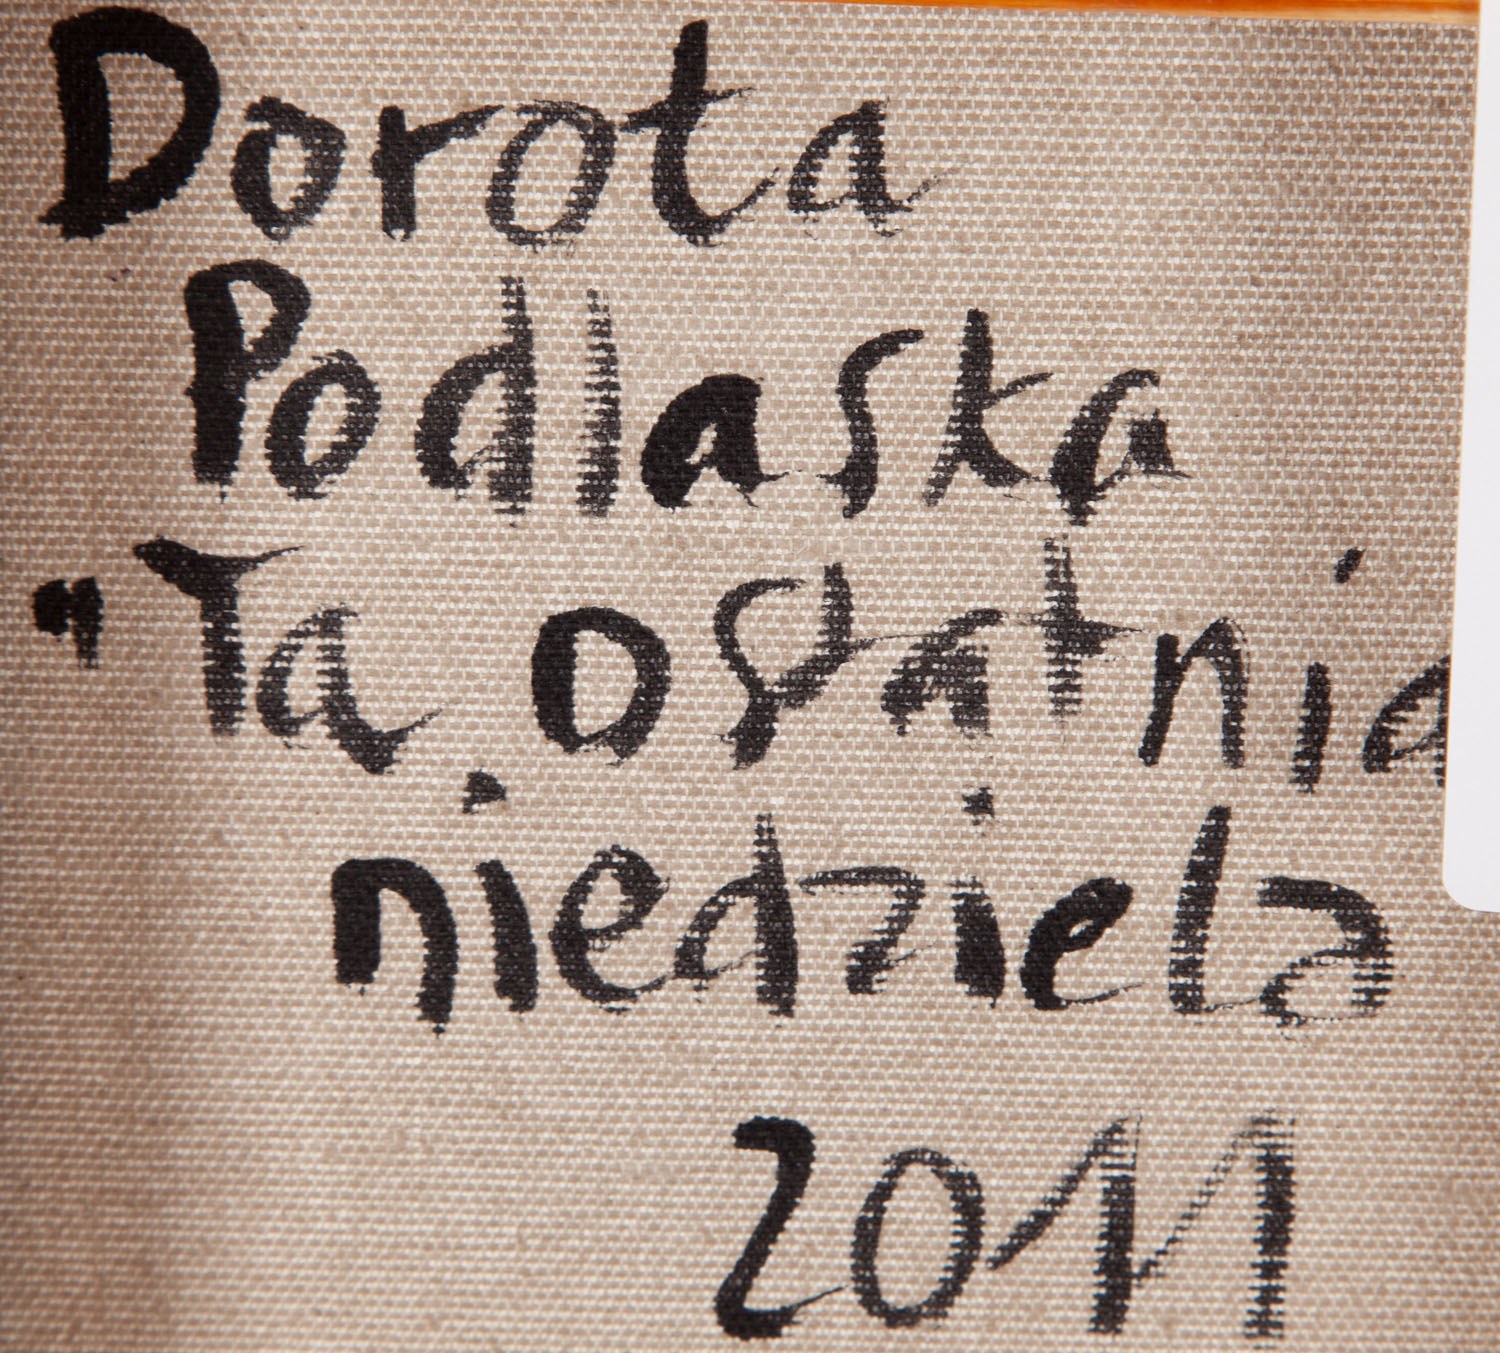 Dorota
Podlaska
"Ta ostatnia
niedziela
2011